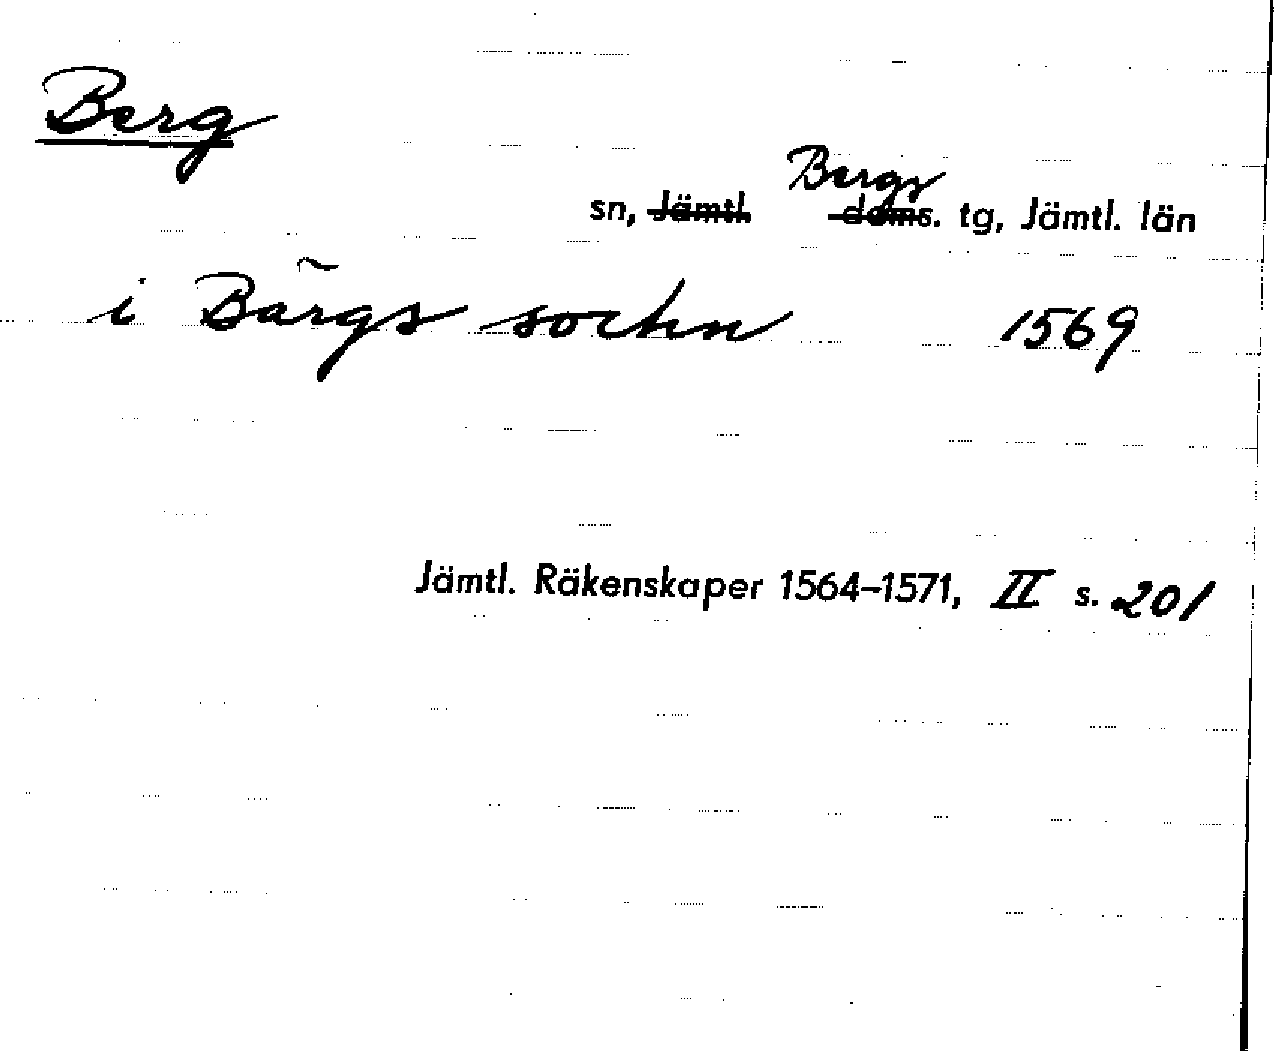 Berg
sn, Jämtl. Bergs doms. tg, Jämtl. län
i Bärgs sochn 1569
Jämtl. Räkenskaper 1564–1571, II s. 201